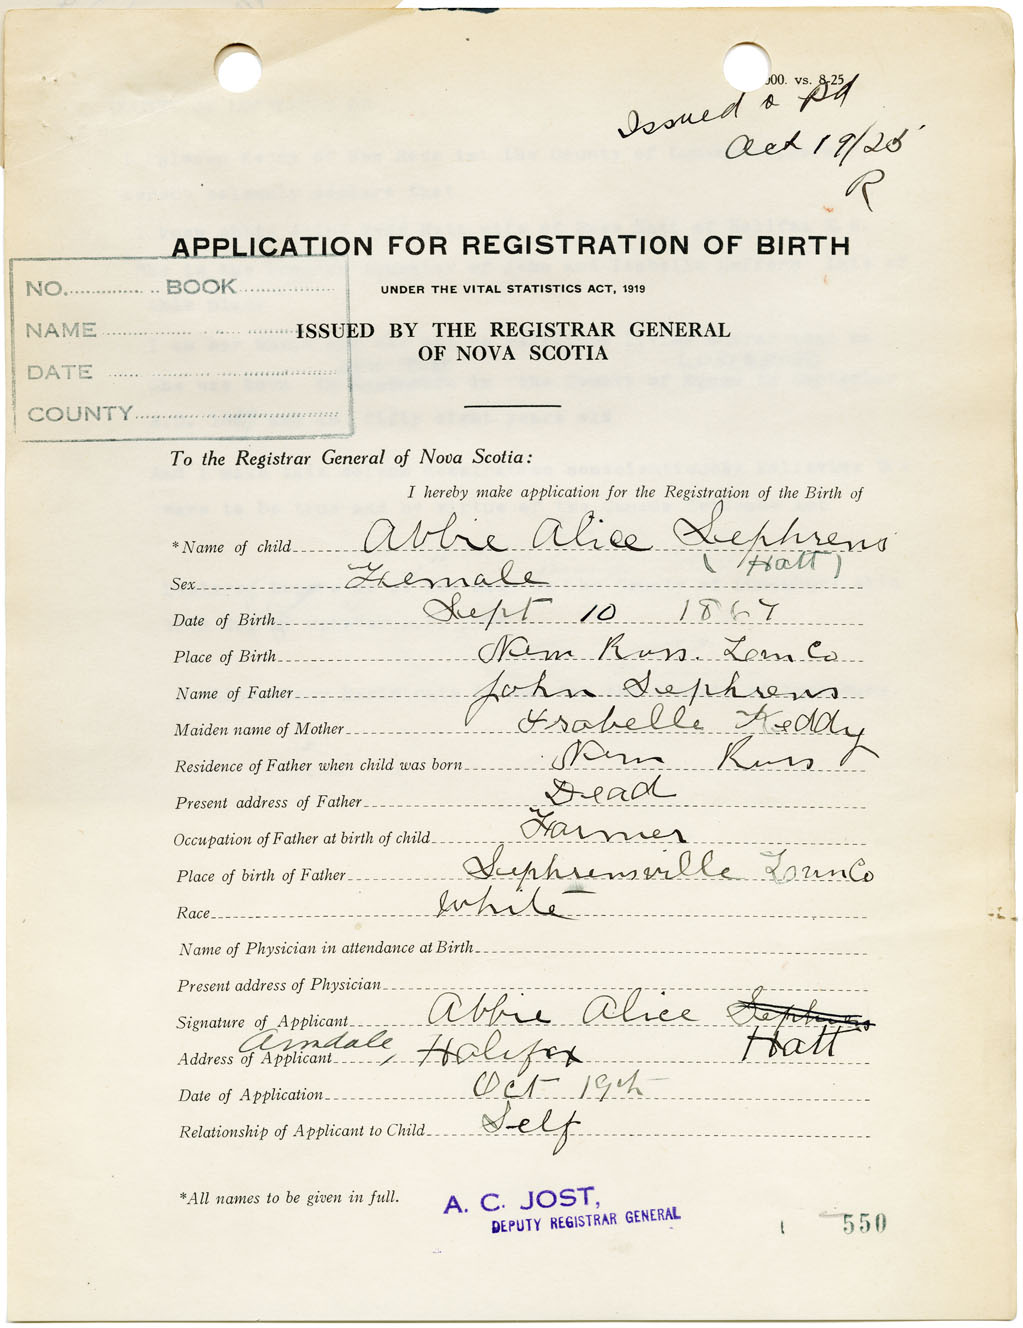 000. vs. 8-25
Issued & Pd
Oct 19/25
R
APPLICATION FOR REGISTRATION OF BIRTH
UNDER THE VITAL STATISTICS ACT, 1919
ISSUED BY THE REGISTRAR GENERAL
OF NOVA SCOTIA
NO. BOOK
NAME
DATE
COUNTY
To the Registrar General of Nova Scotia:
I hereby make application for the Registration of the Birth of
*Name of child Abbie Alice Sephrens
(Hatt)
Sex Female
Date of Birth Sept 10 1867
Place of Birth New Ross. Lun Co
Name of Father John Sephrens
Maiden name of Mother Isabelle Keddy
Residence of Father when child was born New Ross
Present address of Father Dead
Occupation of Father at birth of child Farmer
Place of birth of Father Sephrensville Lun Co
Race White
Name of Physician in attendance at Birth
Present address of Physician
Signature of Applicant Abbie Alice Sephrens
Hatt
Address of Applicant Armdale, Halifax
Date of Application Oct 19th
Relationship of Applicant to Child Self
*All names to be given in full.
A. C. JOST,
DEPUTY REGISTRAR GENERAL
550